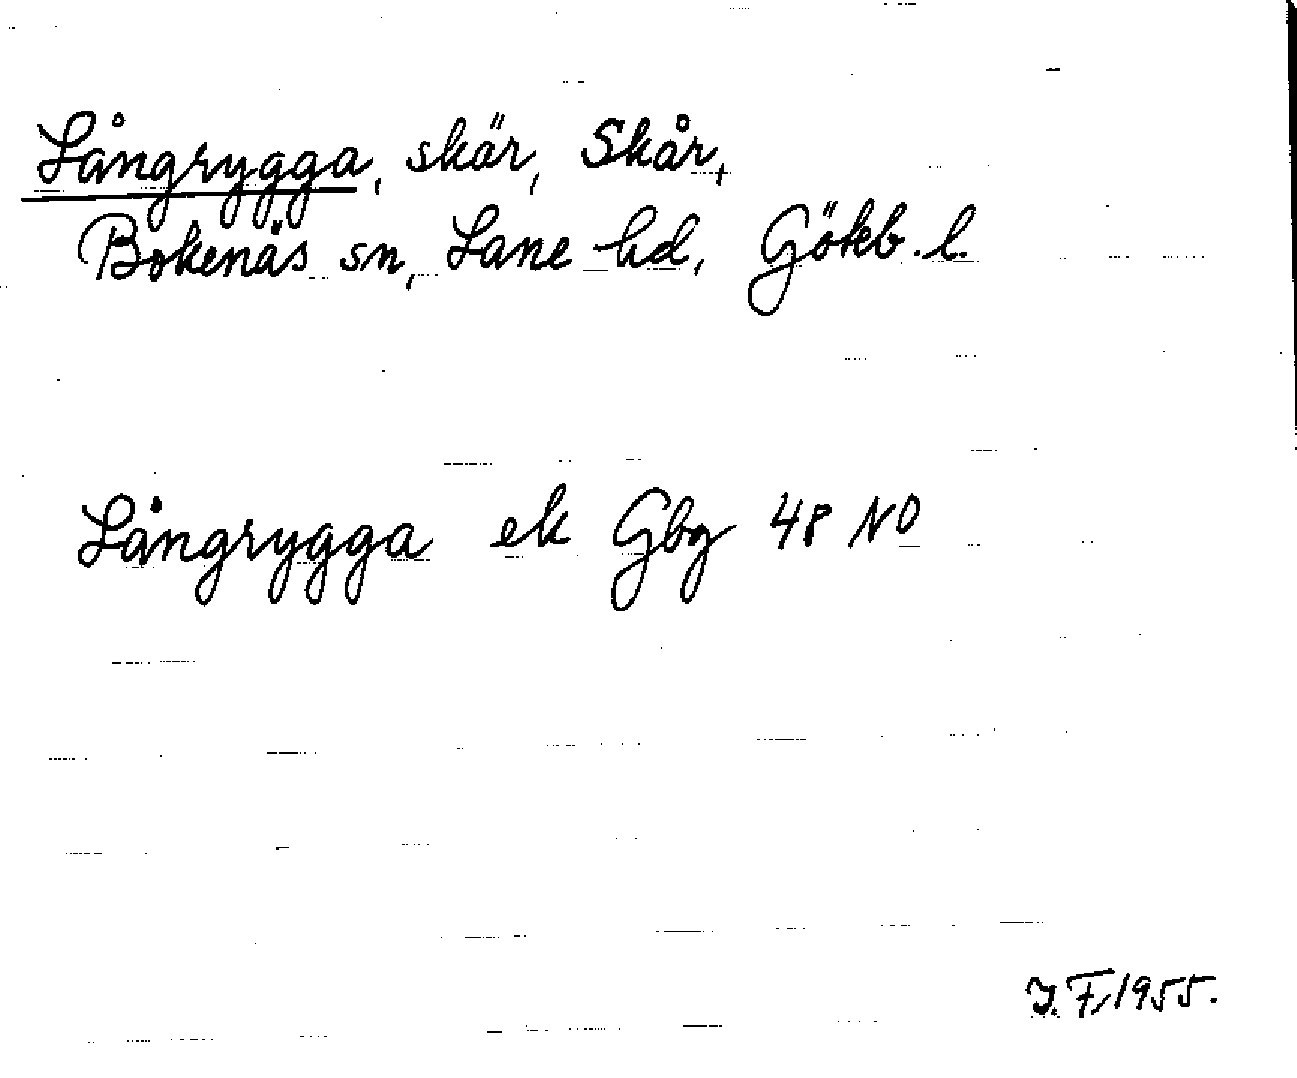 Långrygga, skär, Skår,
Bokenäs sn, Lane hd, Götkb. l.
Långrygga ek Gbg 48 NO
J. F. 1955.